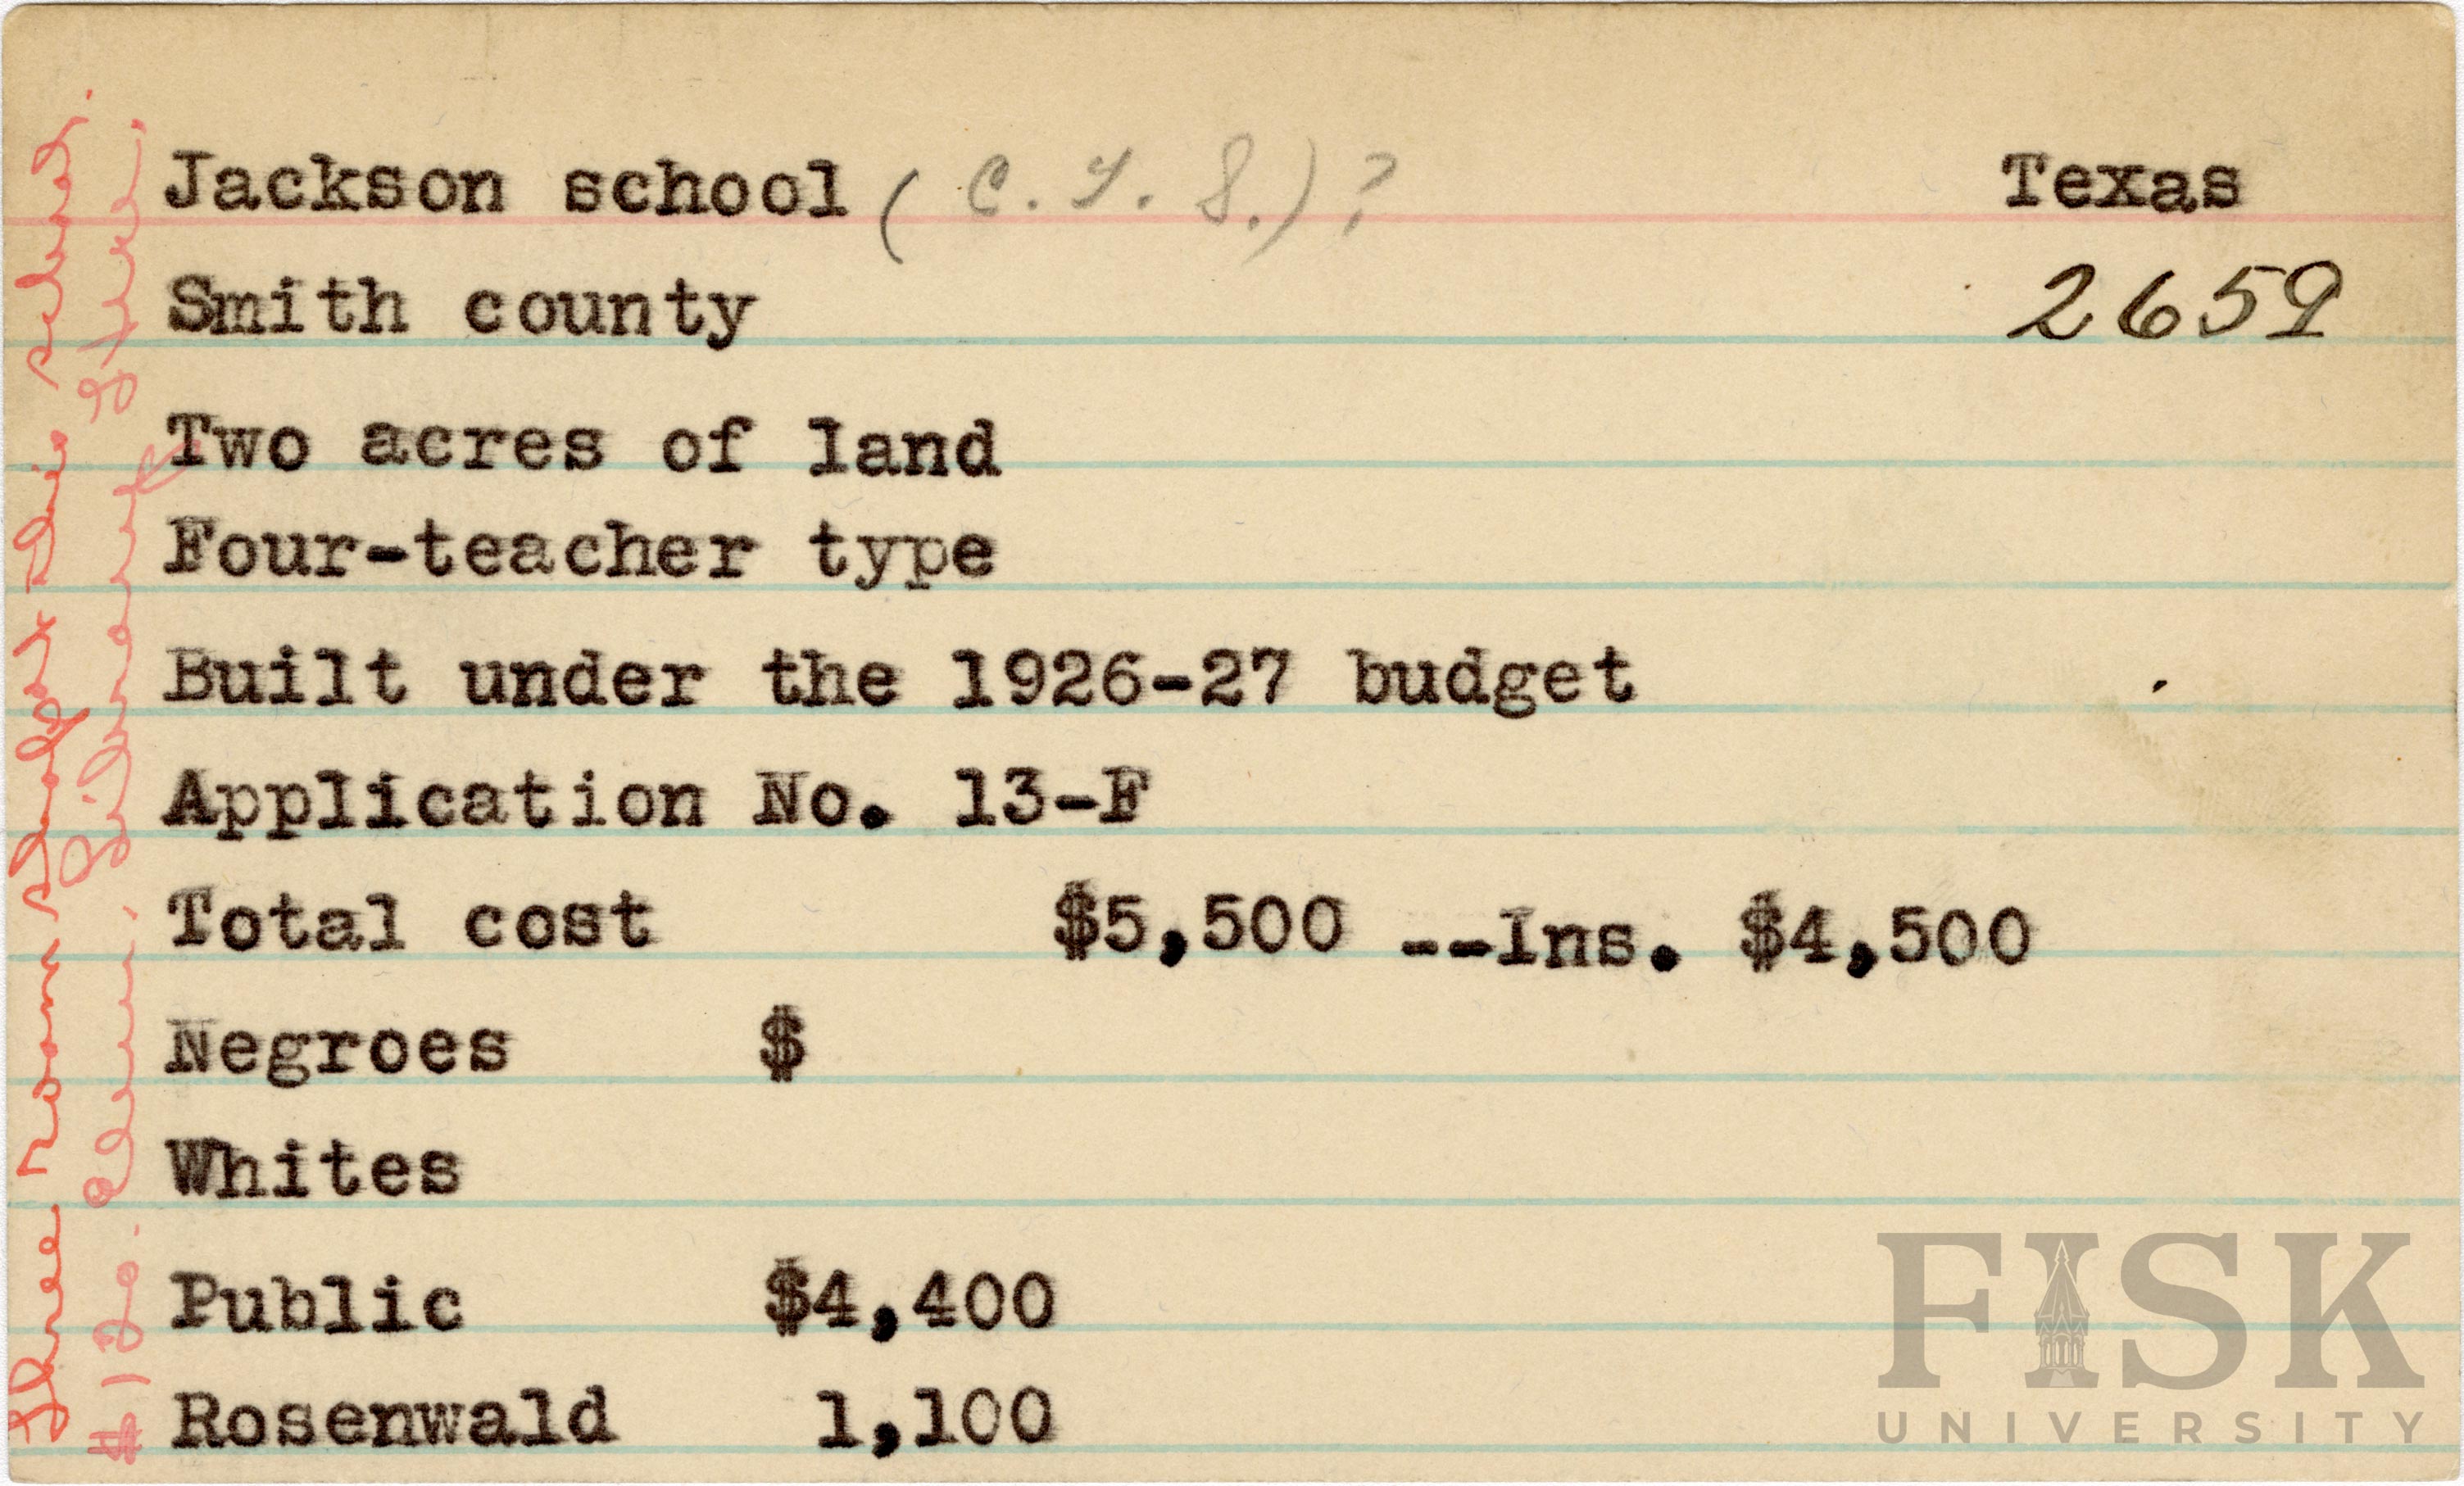 Jackson school (C. T. S.)? Texas
Smith county 2659
Two acres of land
Four-teacher type
Built under the 1926-27 budget
Application No. 13-F
Total cost $5,500 --Ins. $4,500
Negroes $
Whites
Public $4,400
Rosenwald 1,100
Three room shop at this school.
$120. Elem. Library
FISK
UNIVERSITY